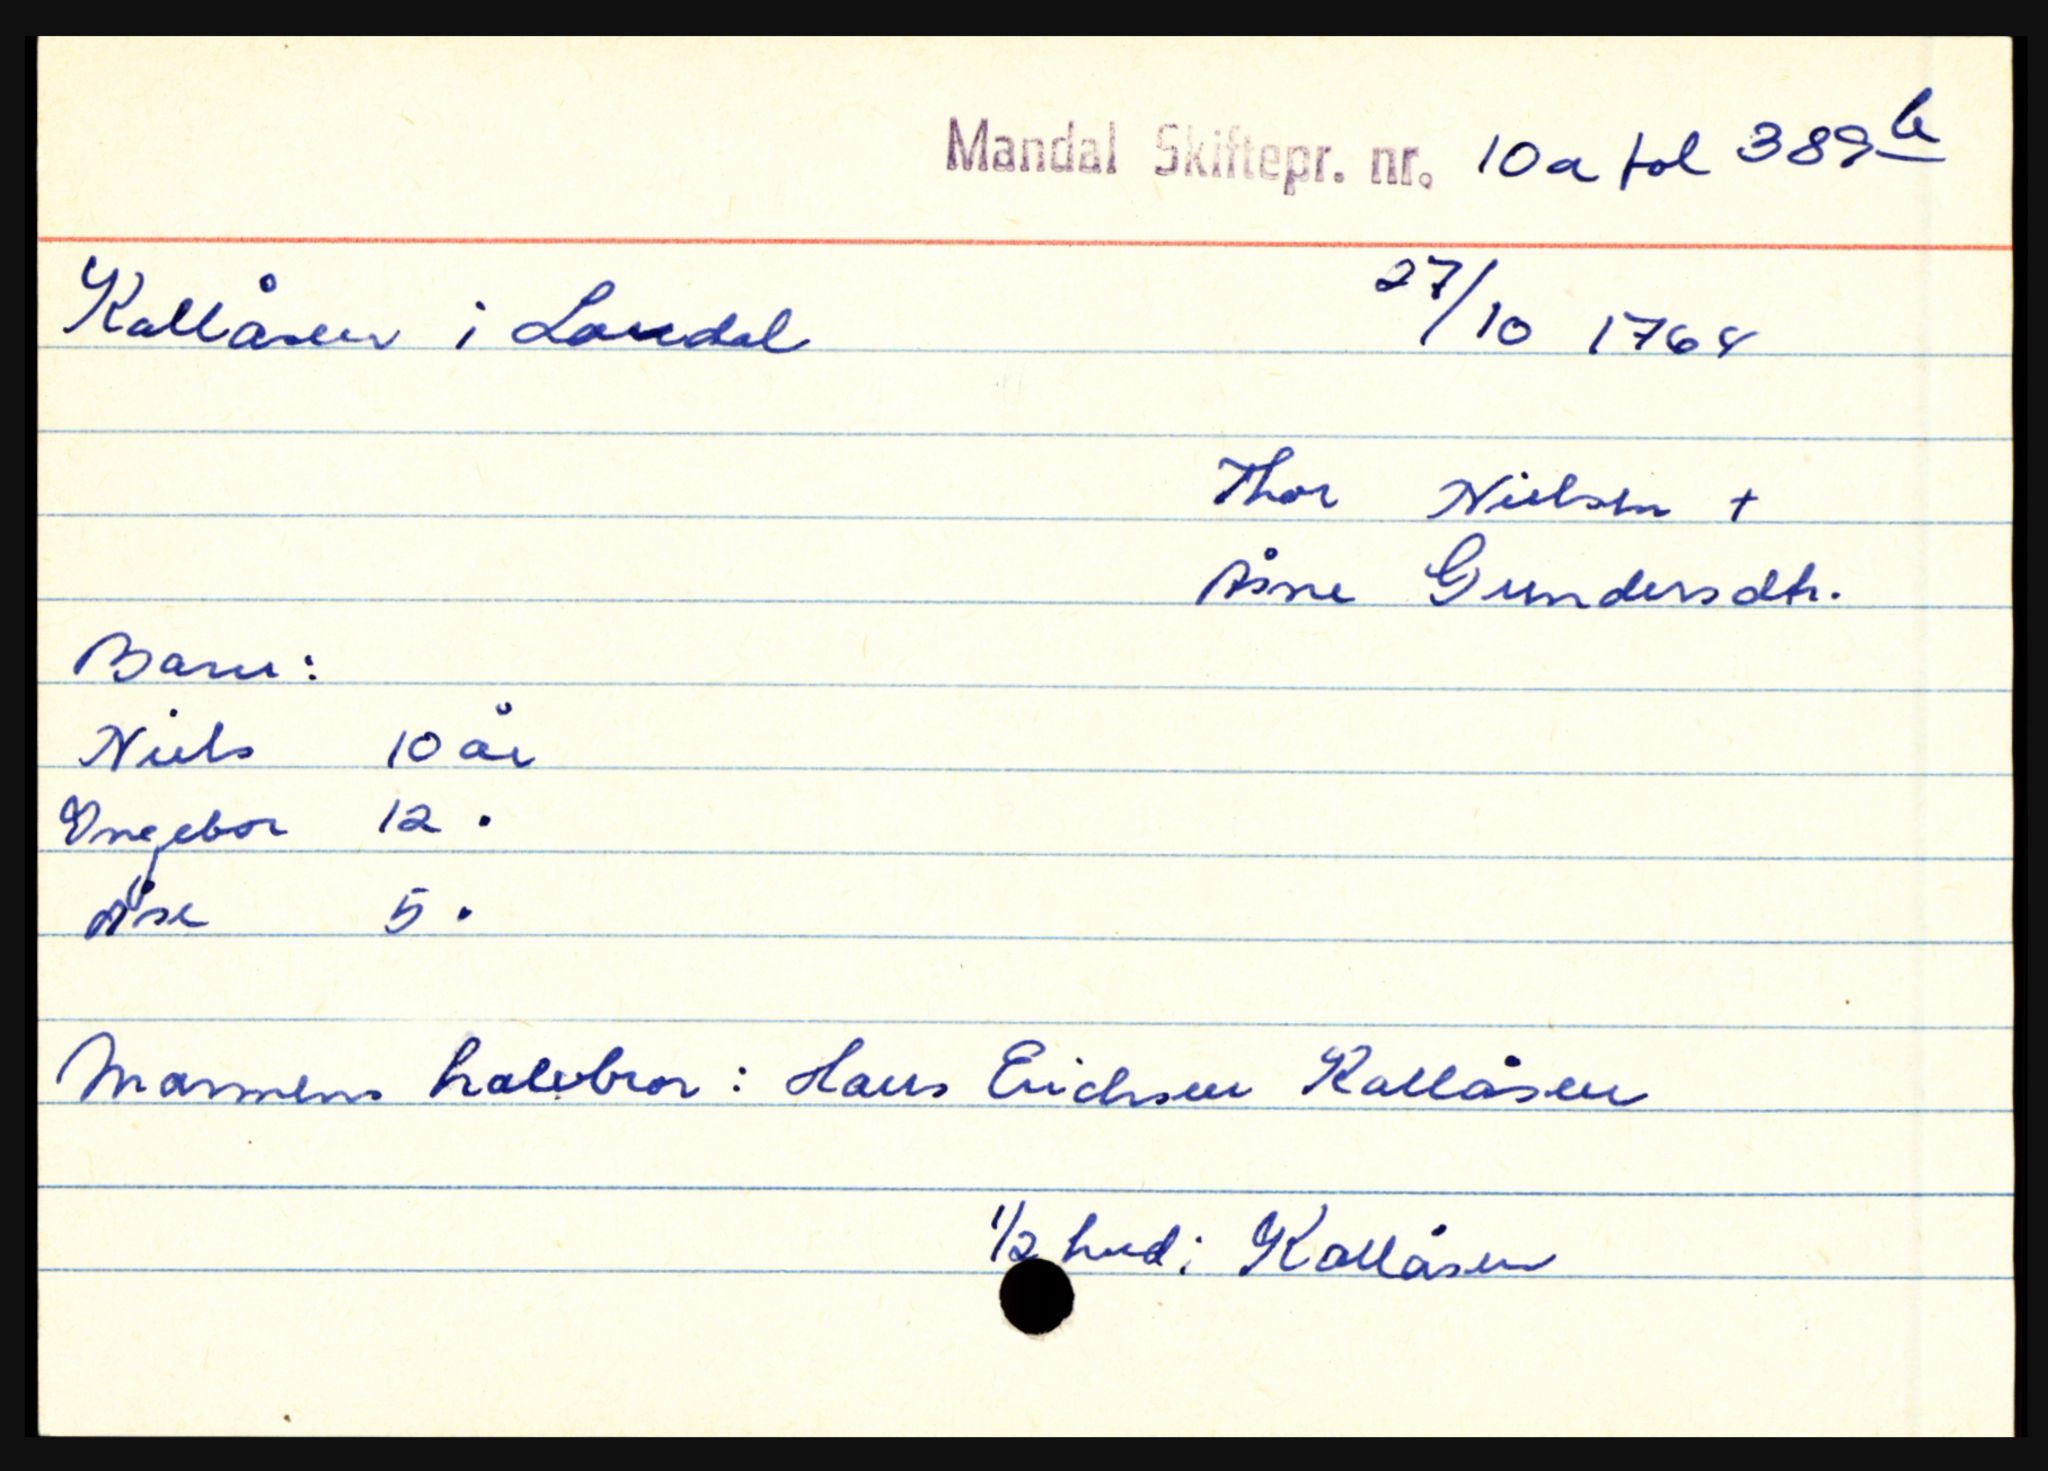 Mandal Skiftepr. nr. 10a fol 389b
Kallåsen i Laudal 27/10 1764
Thor Nielsen +
Åsne Gundersdtr.
Barn:
Niels 10 år
Ingebor 12 "
Åse 5 "
Mannens halvbror: Hans Erichsen Kallåsen
1/2 hud i Kallåsen